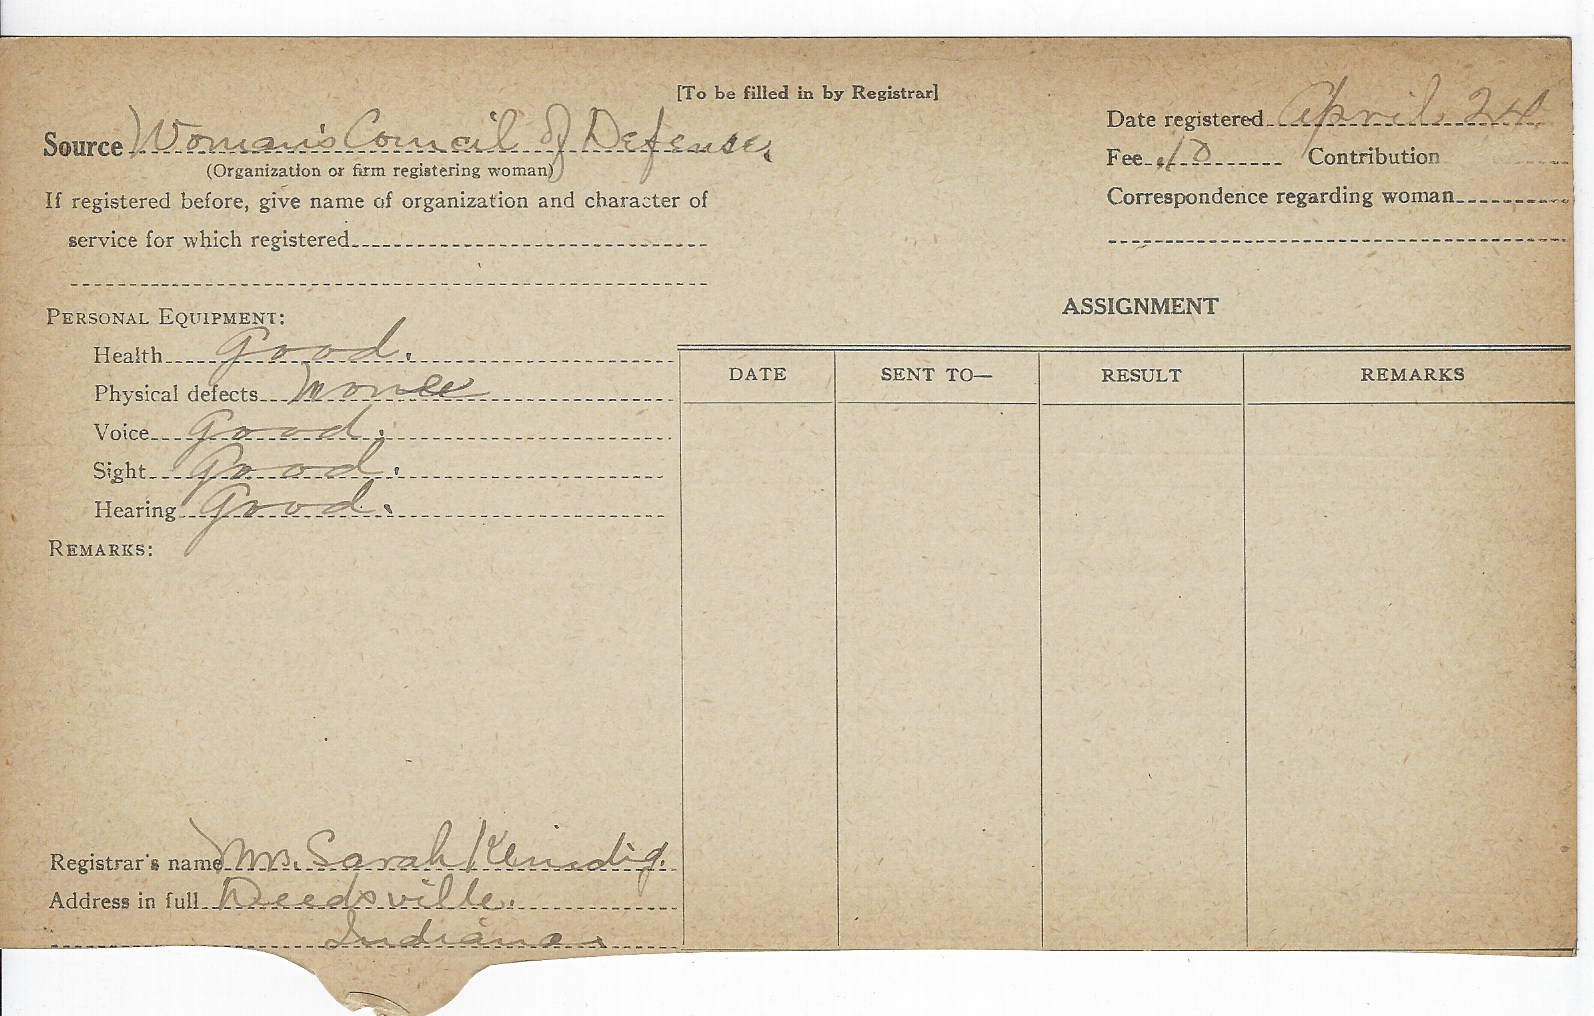 [To be filled in by Registrar]
Source Woman's Council of Defense.
(Organization or firm registering woman)
If registered before, give name of organization and character of
service for which registered
Date registered April 24.
Fee .10 Contribution
Correspondence regarding woman
PERSONAL EQUIPMENT:
Health Good.
Physical defects none
Voice Good.
Sight Good.
Hearing Good.
REMARKS:
ASSIGNMENT
DATE SENT TO— RESULT REMARKS
Registrar's name Mrs. Sarah
Address in full Deedsville.
Indiana.